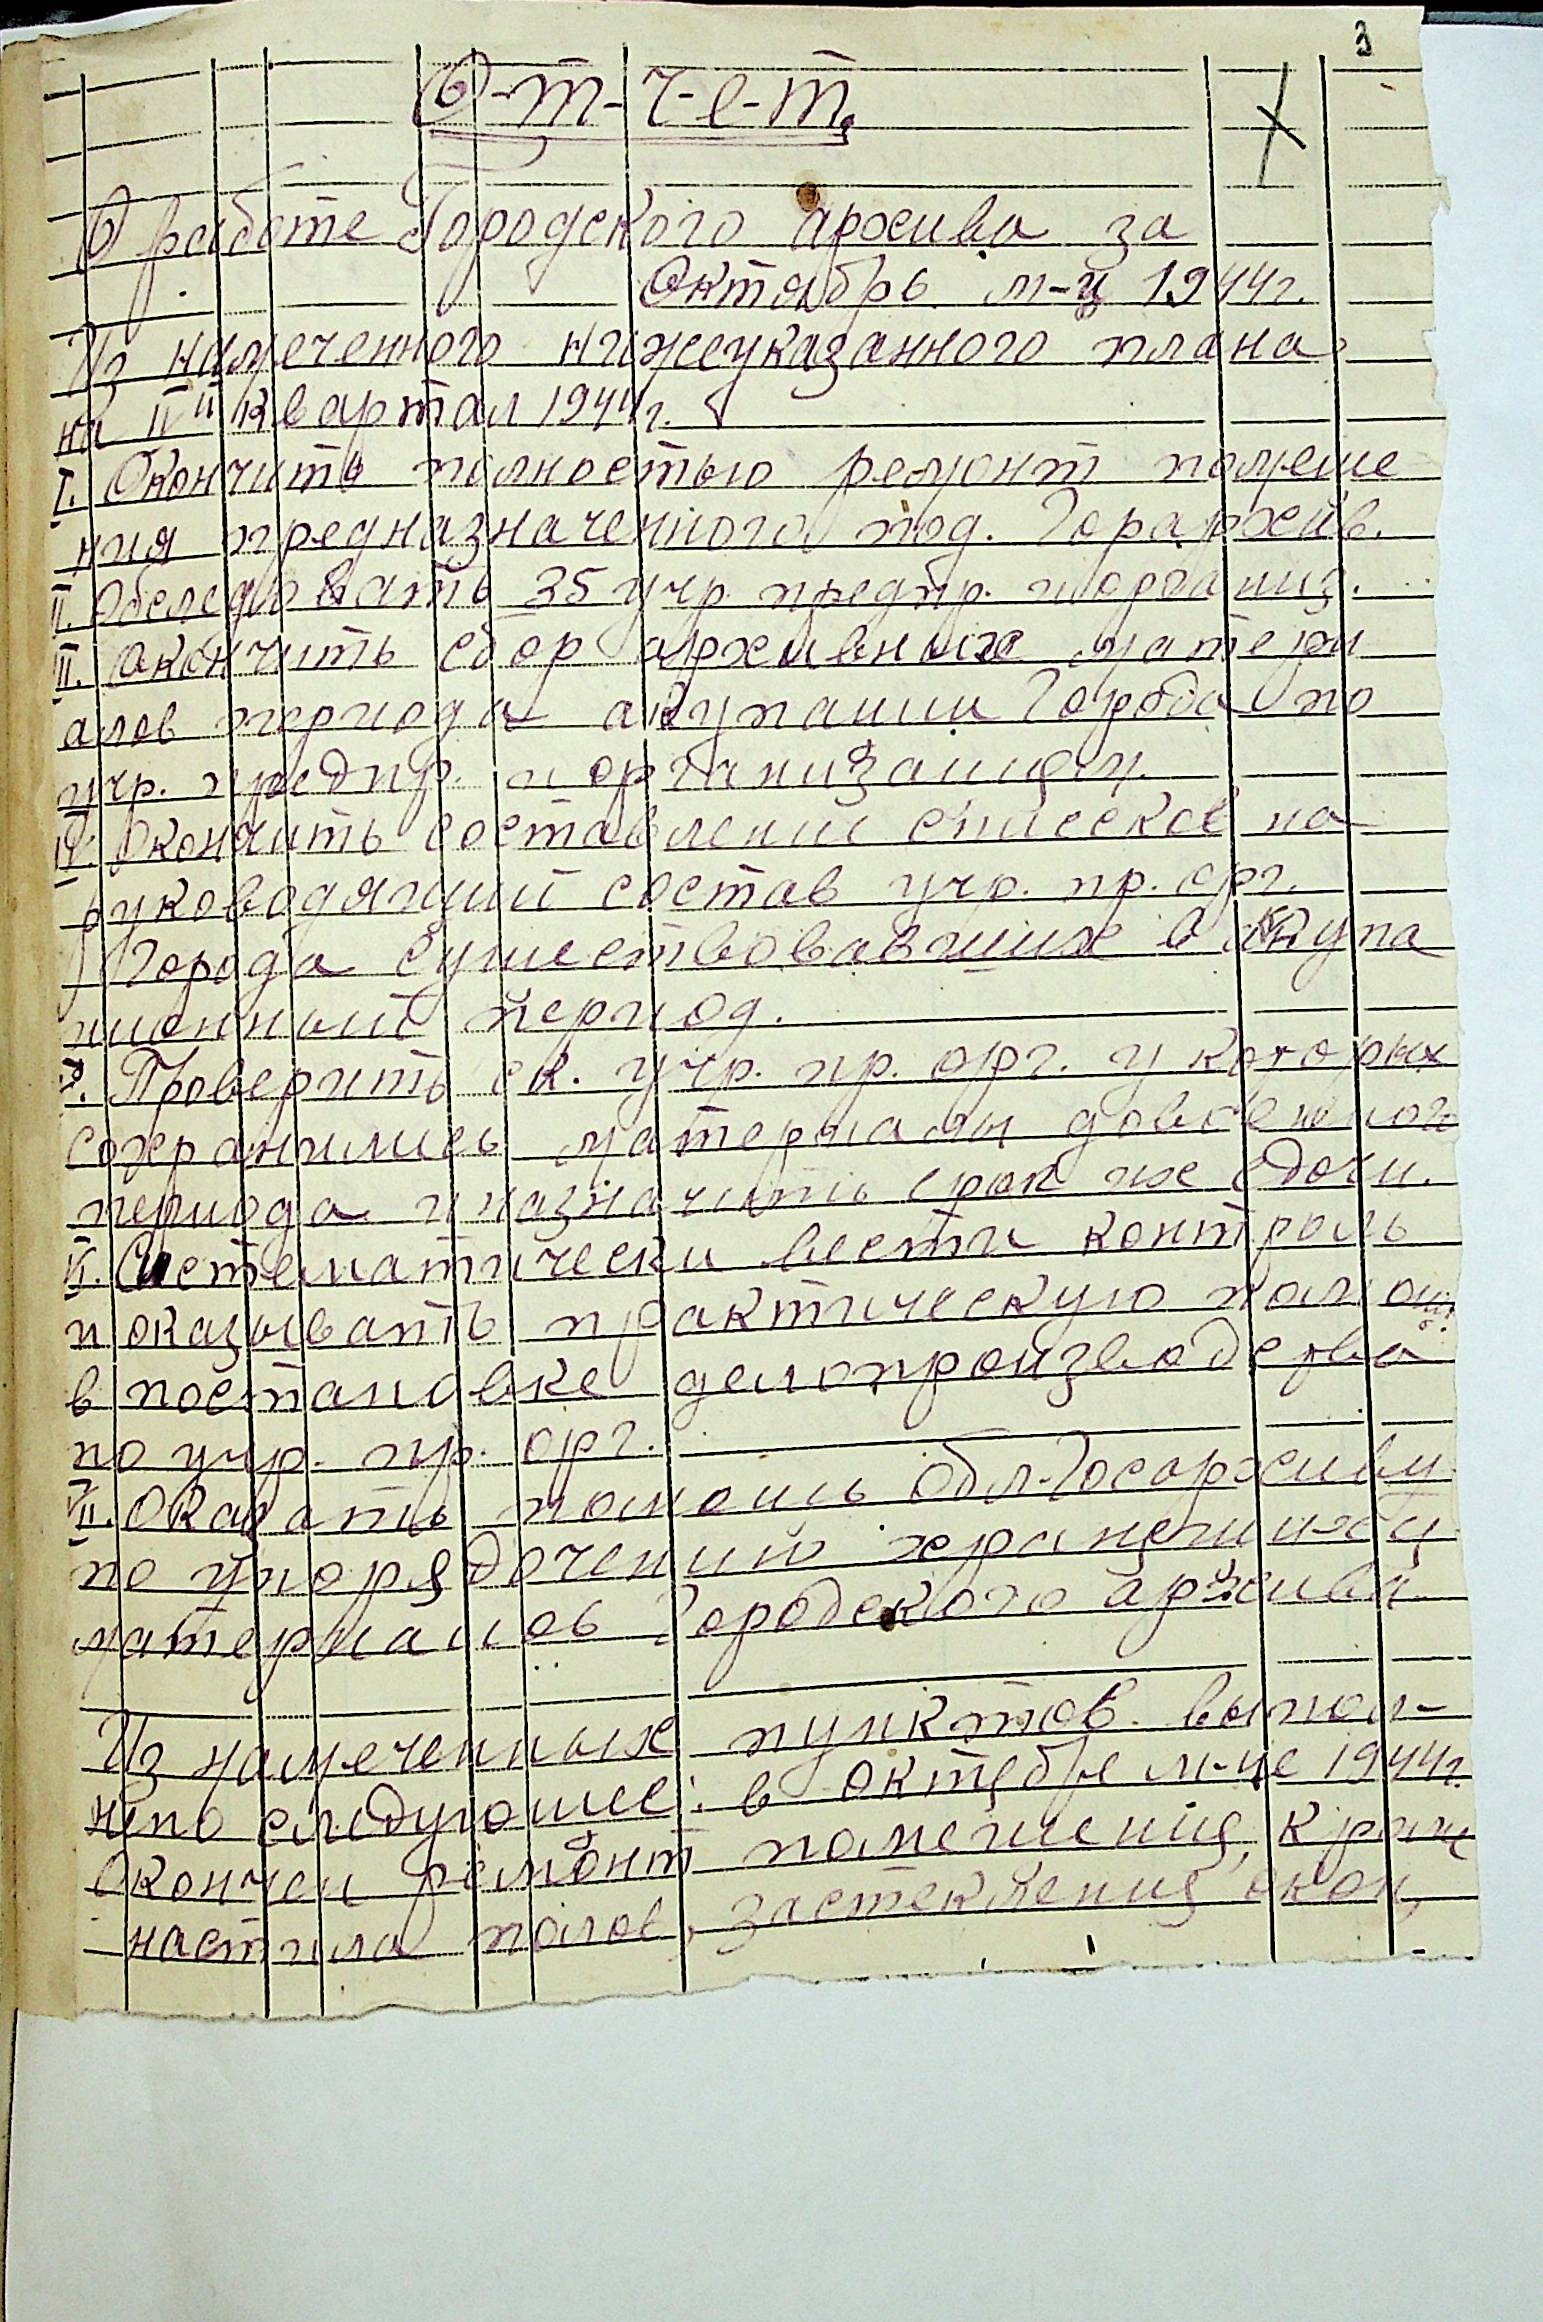 3
О-т-ч-е-т.
О работе Городского архива за
Октябрь м-ц 1944г.
Из намеченного нижеуказанного плана
на IV й квартал 1944г.
I. Окончить полностью ремонт помеще
ния предназначенного под. Горархив.
II. Обследовать 35 учр. предпр. и организ.
III. Окончить сбор архивных матери
алов периода акупации Города по
учр. предпр. и организациям.
IV. Окончить составление списсков на
руководящий состав учр. пр. орг.
Города существовавших в акупа
ционный период.
V. Проверить ск. учр. пр. орг. у которых
сохранились материалы довоенного
периода и назначить срок их сдачи.
VI. Систематически вести контроль
и оказывать практическую помощь
в постановке делопроизводства
по учр. пр. орг.
VII. Оказать помощь Обл.Госархиву
по упорядочению хранящихся
материалов Городского архива.
Из намеченных пунктов выпол-
нено следующее: в октябре м-це 1944г.
окончен ремонт помещения, кроме
настила полов, застекления окон,